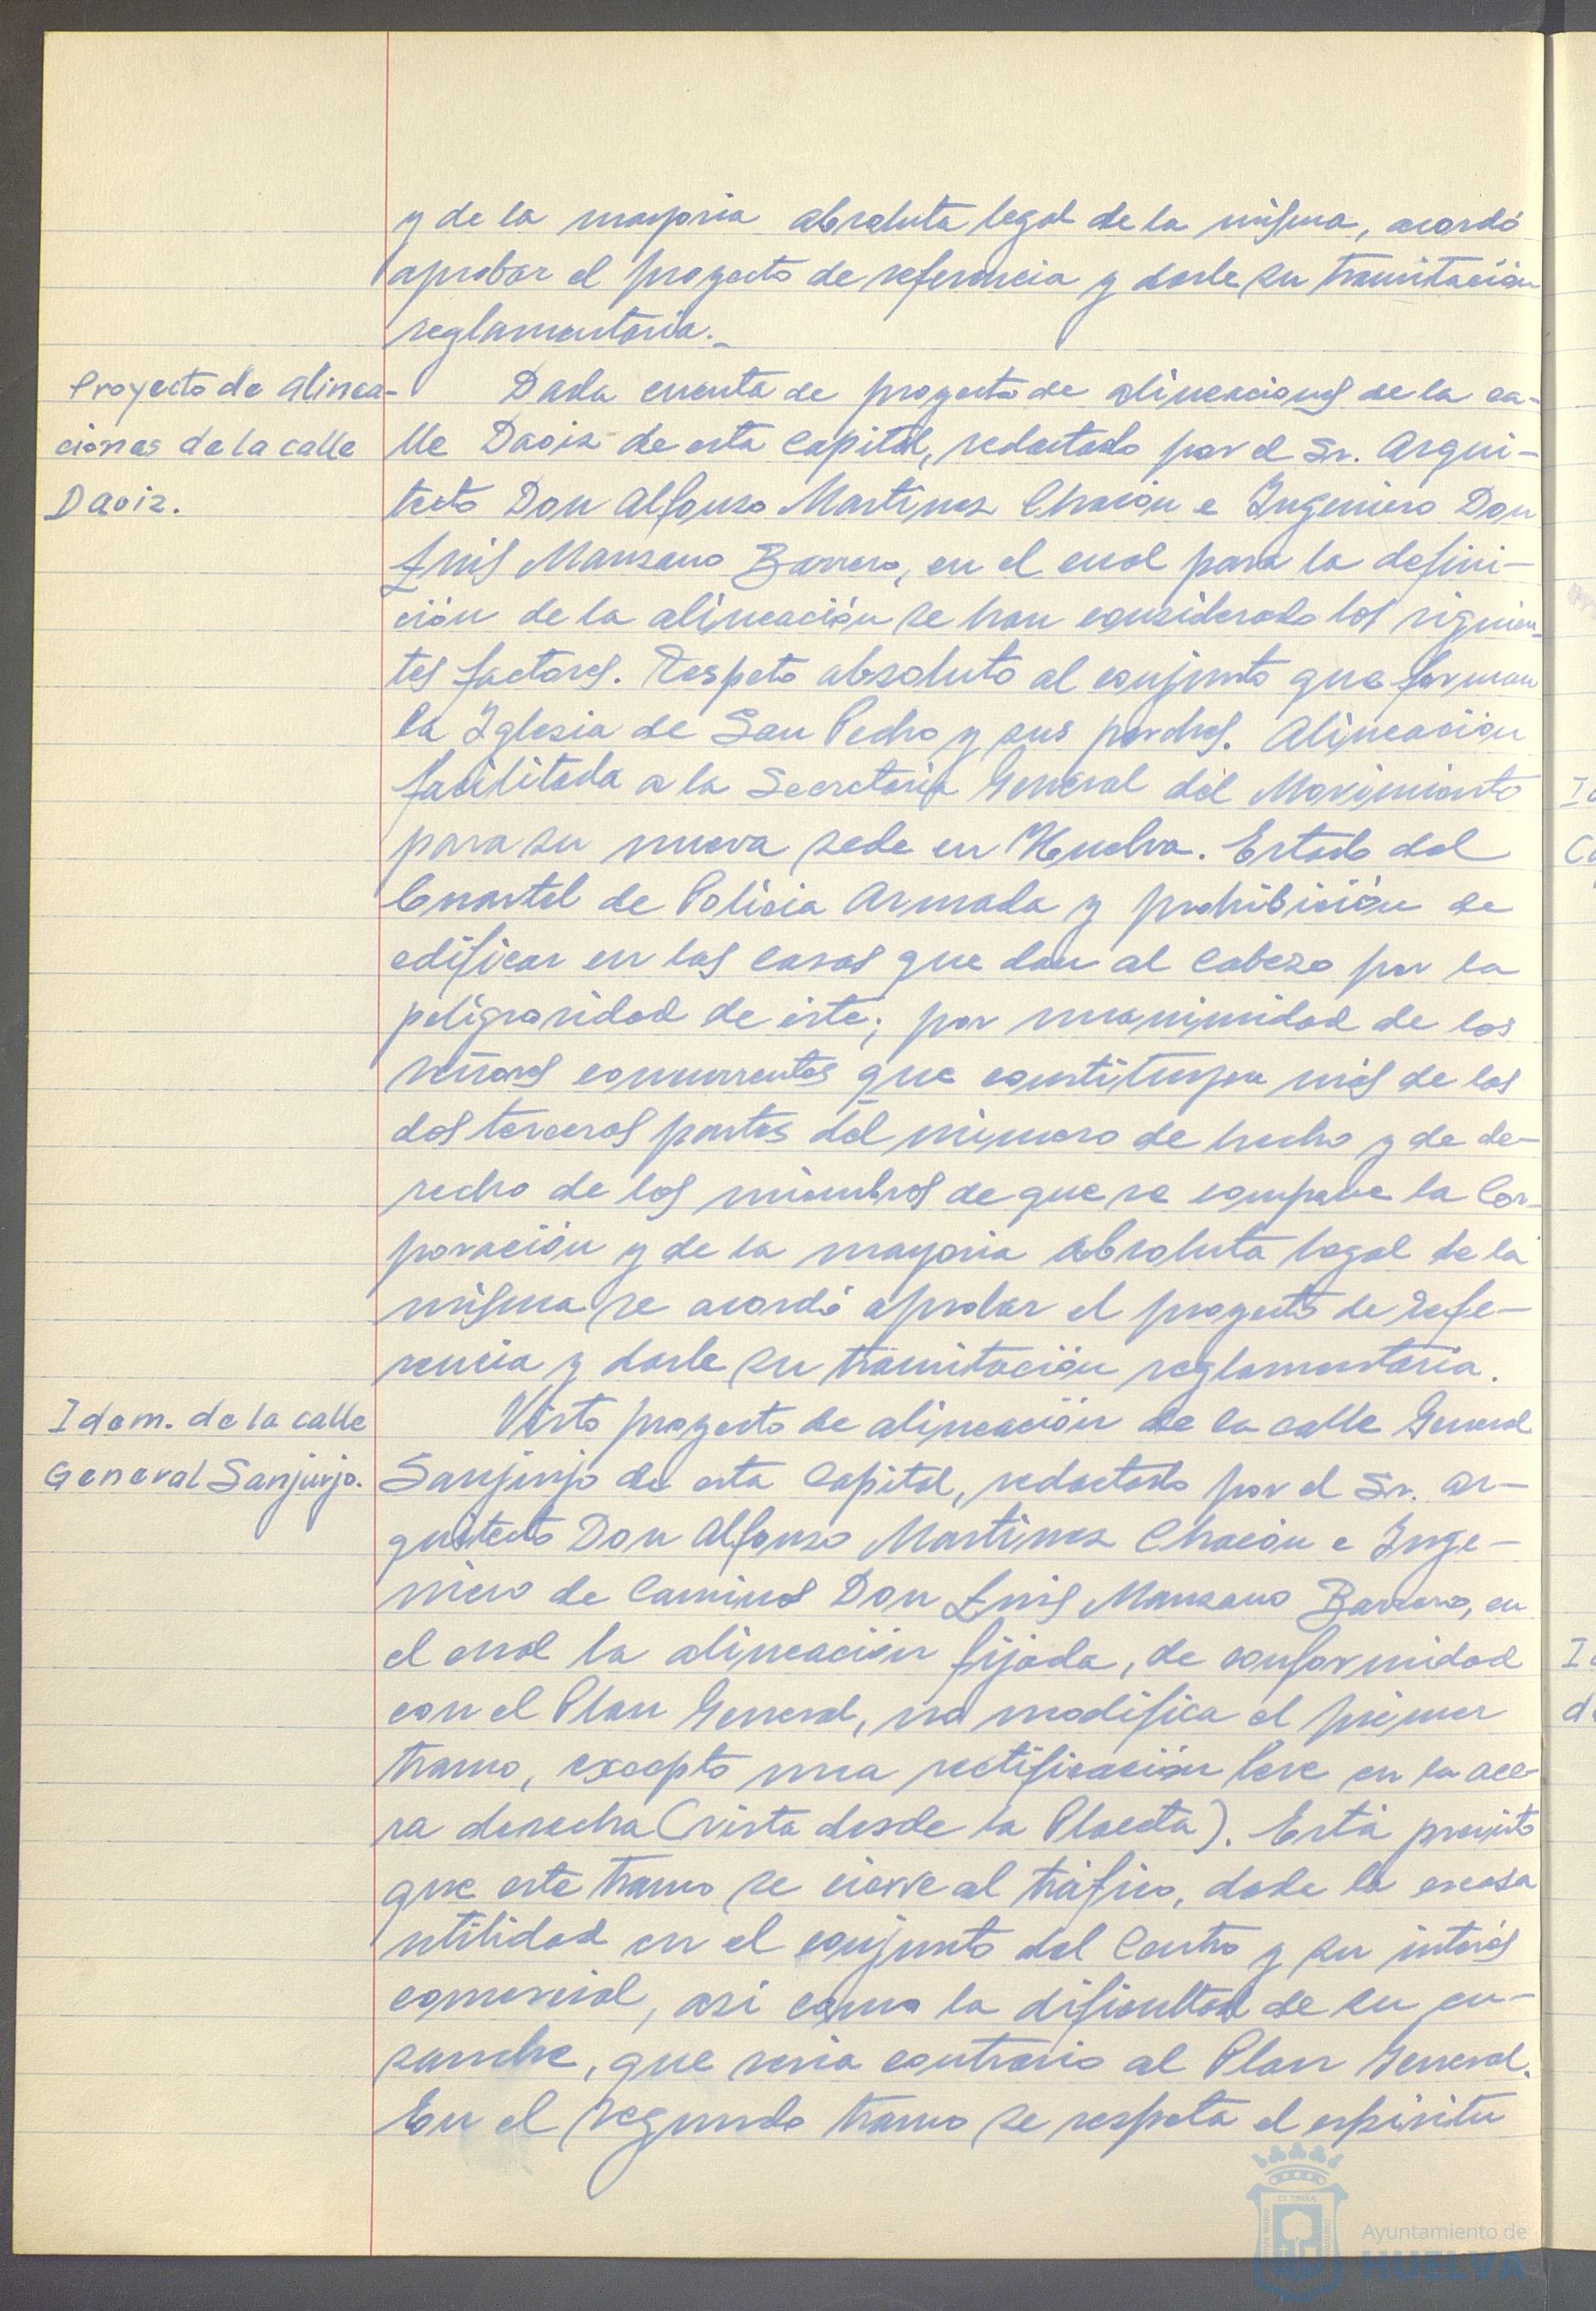 y de la mayoria absoluta legal de la misma, acordó
aprobar el proyecto de referencia y darle su tramitación
reglamentaria._
Proyecto de alinea-
ciones de la calle
Daoiz.
Dada cuenta de proyecto de alineaciones de la ca-
lle Daoiz de esta Capital, redactado por el Sr. Arqui-
tecto Don Alfonso Martinez Chacón e Ingeniero Don
Luis Manzano Barrero, en el cual para la defini-
ción de la alineación se han considerado los siguien-
tes factores. Respeto absoluto al conjunto que forman
la Iglesia de San Pedro y sus porches. Alineación
facilitada a la Secretaria General del Movimiento
para su nueva sede en Huelva. Estado del
Cuartel de Policia Armada y prohibición de
edificar en las casas que dan al Cabezo por la
peligrosidad de éste; por unanimidad de los
señores concurrentes que constituyen más de las
dos terceras partes del número de hecho y de de-
recho de los miembros de que se compone la Cor-
poración y de la mayoria absoluta legal de la
misma se acordó aprobar el proyecto de refe-
rencia y darle su tramitación reglamentaria.
Idem. de la calle
General Sanjurjo.
Visto proyecto de alineación de la calle General
Sanjurjo de esta Capital, redactado por el Sr. Ar-
quitecto Don Alfonso Martinez Chacón e Inge-
niero de Caminos Don Luis Manzano Barrero, en
el cual la alineación fijada, de conformidad
con el Plan General, no modifica el primer
tramo, excepto una rectificación leve en la ace-
ra derecha (vista desde la Placeta). Está previsto
que este tramo se cierre al tráfico, dada la escasa
utilidad en el conjunto del Centro y su interés
comercial, asi como la dificultad de su en-
sanche, que seria contrario al Plan General.
En el segundo tramo se respeta el espiritu
Ayuntamiento de
HUELVA